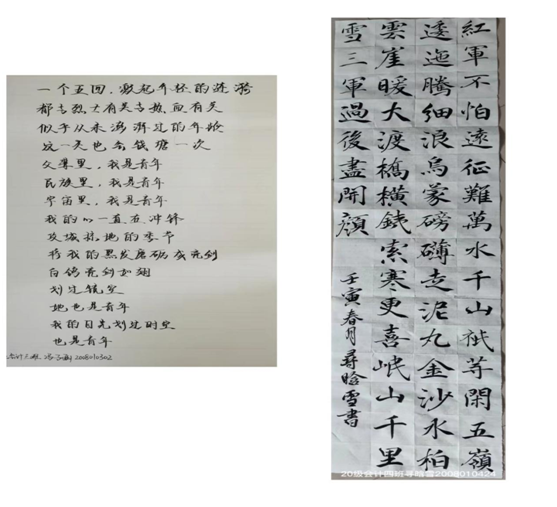 一个五四，激起年轻的涟漪
都与烈士有关与热血有关
似乎从未澎湃过的年龄
这一天也会钱塘一次
父辈里，我是青年
民族里，我是青年
宇宙里，我是青年
我的心一直在冲锋
攻城掠地的季节
将我的黑发磨砺成亮剑
白鸽亮剑如翅
划过镜空
她也是青年
我的目光划过时空
也是青年
会计三班 2008010302
紅軍不怕遠征難萬水千山祇等閑五嶺
逶迤騰細浪烏蒙磅礴走泥丸金沙水柏
雲崖暖大渡橋橫鐵索寒更喜岷山千里
雪三軍過後盡開顏
壬寅春月尋晗雪書
20级会计四班寻晗雪2008010424